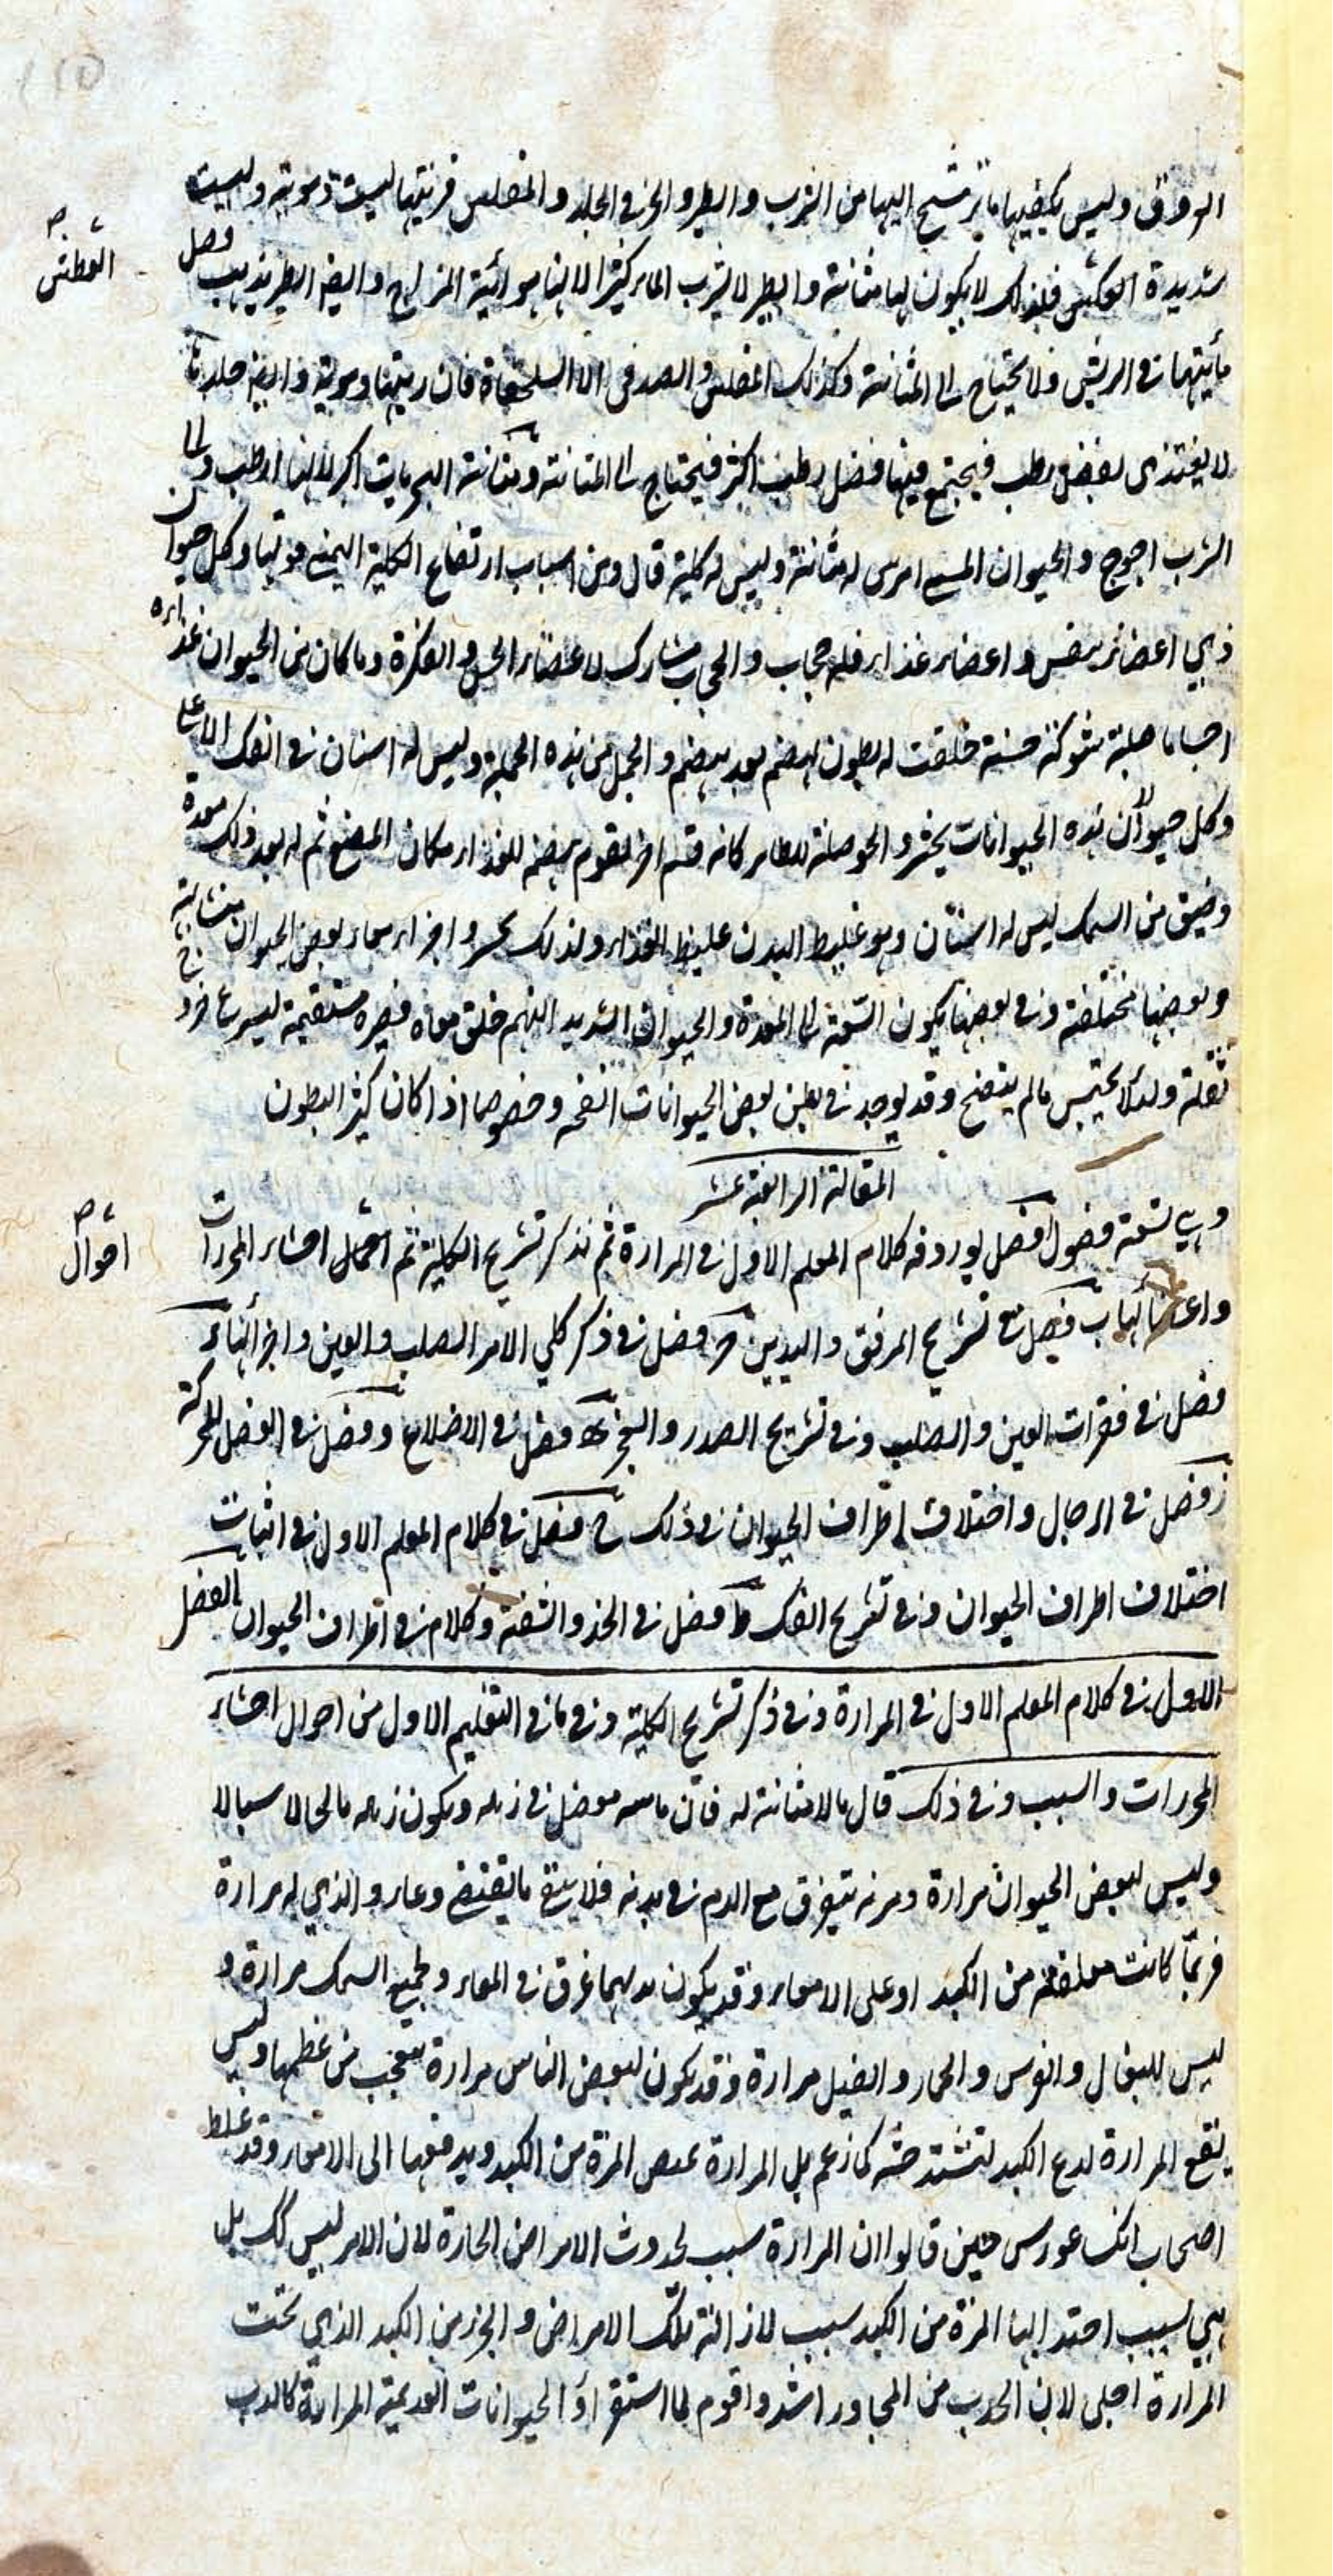 العروق وليس يكفيها ما يترشح اليها من الشرب والطير والحرز في الجلد والمفلس فريتها ليست دموية وليست
العطش
شديدة العطش فلذلك لا يكون لها مثانة والطير لا يشرب الماء كثيرا لانها هوائية المزاج وايضا الطير يذهب فضل
مائيتها في الريش ولا يحتاج الى المثانة وكذلك المفلس والصدفي الا السلحفاة فان ريتها دموية وايضا جلدها
لا يغتذى بفضل رطب فيجتمع فيها فضل رطب اكثر فيحتاج الى المثانة ومثانة البحريات اكبر لانها ارطب والى
الشرب احوج والحيوان المسمى امرس له مثانة وليس له كلية قال ومن اسباب ارتفاع الكلية اليمنى قوتها وكل حيوان
ذي اعضاء تنفس واعضاء غذاء فله حجاب والحجاب مشارك لاعضاء الحس والفكرة وما كان من الحيوان غذاءه
اجساما صلبة شوكية خشنة خلقت له بطون لهضم بعد هضم والجمل من هذه الجملة وليس له اسنان في الفك الاعلى
وكل حيوان من هذه الحيوانات يجتر والحوصلة للطاير كانه فم اخر لتقوم بهضمه للغذاء مكان المضغ ثم له بعد ذلك معدة
وضيق من السمك ليس له اسنان وهو غليظ البدن غليظ الغذاء ولذلك يجتر واجزاء معاء بعض الحيوان متشابهة
وبعضها مختلفة وفي بعضها يكون السعة الى المعدة والحيوان الشديد النهم خلق معاه قصيرة مستقيمة ليسرع خروج
ثفله ولئلا يحتبس ما لم ينضج وقد يوجد في بطن بعض الحيوانات انفحه وخصوصا اذا كان كثير البطون
المقالة الرابعة عشر
وهي تسعة فصول ا فصل يورد فيه كلام المعلم الاول في المرارة ثم نذكر تشريح الكلية ثم اعمال احشاء المحررات
احوال
واعضائها ب فصل في تشريح المرفق واليدين ج فصل في ذكر كلي الامر الصلب والعين واجزائها د
فصل في فقرات العين والصلب وفي تشريح الصدر والعجز ه فصل في الاضلاع و فصل في العضل المحركة
ز فصل في الرجال واختلاف اطراف الحيوان في ذلك ح فصل في كلام المعلم الاول في اثبات
اختلاف اطراف الحيوان وفي تشريح الفك ط فصل في الخد والشفة وكلام في اطراف الحيوان الفصل
الاول في كلام المعلم الاول في المرارة وفي ذكر تشريح الكلية وفي ما في التعليم الاول من احوال احشاء
المحررات والسبب وفي ذلك قال ما لا مثانة له فان مائيته فضل في زبله ويكون زبله مالحا لا سيما لا
وليس لبعض الحيوان مرارة ومرته يتفرق مع الدم في بدنه فلا يتفق ما يقتضي وعاء والذي له مرارة
فربما كانت معلقة من الكبد او على الامعاء وقد يكون عرق في المعاء ولجميع السمك مرارة و
ليس للبغال والفرس والحمار والفيل مرارة وقد يكون لبعض الناس مرارة يتعجب من عظمها وليس
ينفع المرارة لدع الكبد لتشتد حسه كما زعم بل المرارة تمص المرة من الكبد ويدفعها الى الامعاء وقد غلط
اصحاب انكساغورس حين قالوا ان المرارة سبب لحدوث الامراض الحارة لان الامر ليس كك بل
هي بسبب اجتذابها المرة من الكبد سبب لازالة تلك الامراض والجزء من الكبد الذي تحت
المرارة احلى لان الجذب من المجاور اشد واقوم لما استقراؤ الحيوانات العديمة المرارة كالدب